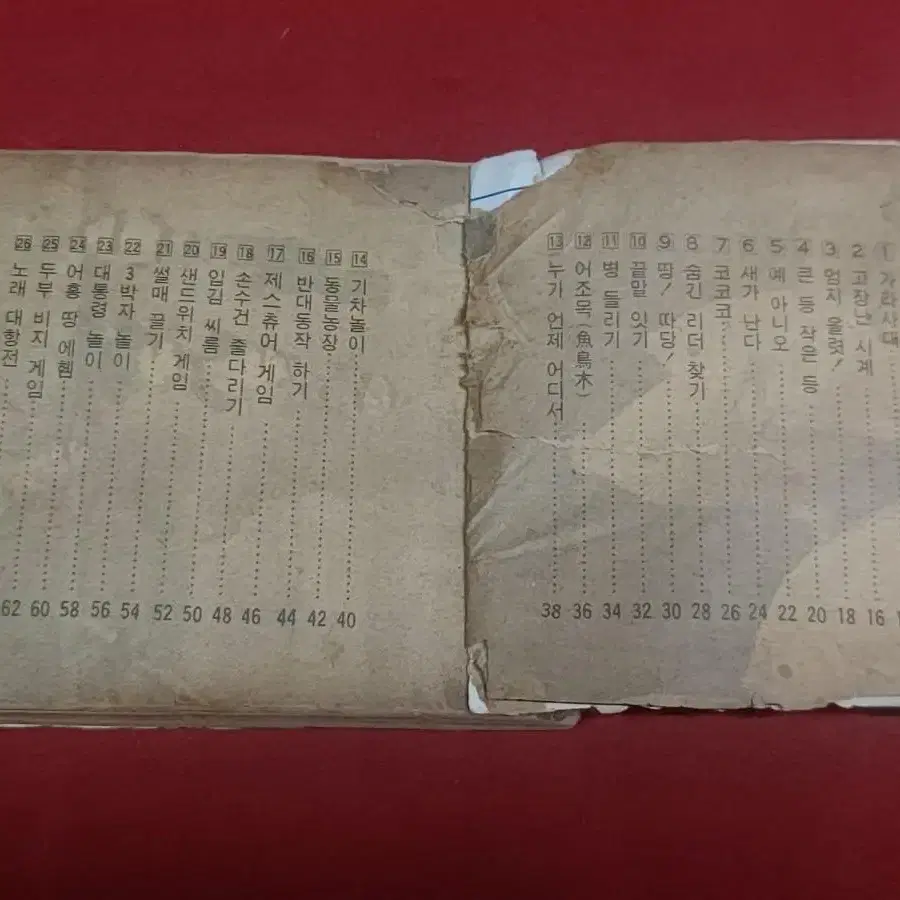 ① 가라사대 ……… 1
2 고장난 시계 ……… 16
3 엄지 올렷! ……… 18
4 큰 등 작은 등 ……… 20
5 예 아니오 ……… 22
6 새가 난다 ……… 24
7 코코코 ……… 26
8 숨긴 리더 찾기 ……… 28
9 땅! 따당! ……… 30
10 끝말 잇기 ……… 32
11 병 돌리기 ……… 34
12 어조목(魚鳥木) ……… 36
13 누가 언제 어디서 ……… 38
14 기차놀이 ……… 40
15 동물농장 ……… 42
16 반대동작 하기 ……… 44
17 제스츄어 게임 ……… 46
18 손수건 줄다리기 ……… 48
19 입김 씨름 ……… 50
20 샌드위치 게임 ……… 52
21 썰매 끌기 ……… 54
22 3박자 놀이 ……… 56
23 대통령 놀이 ……… 58
24 어흥 땅 에헴 ……… 60
25 두부 비지 게임 ……… 62
26 노래 대항전